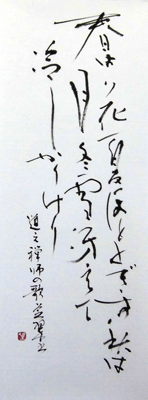 春は花夏ほととぎす秋は
月冬雪冴えて
冷しかりけり
道元禅師の歌